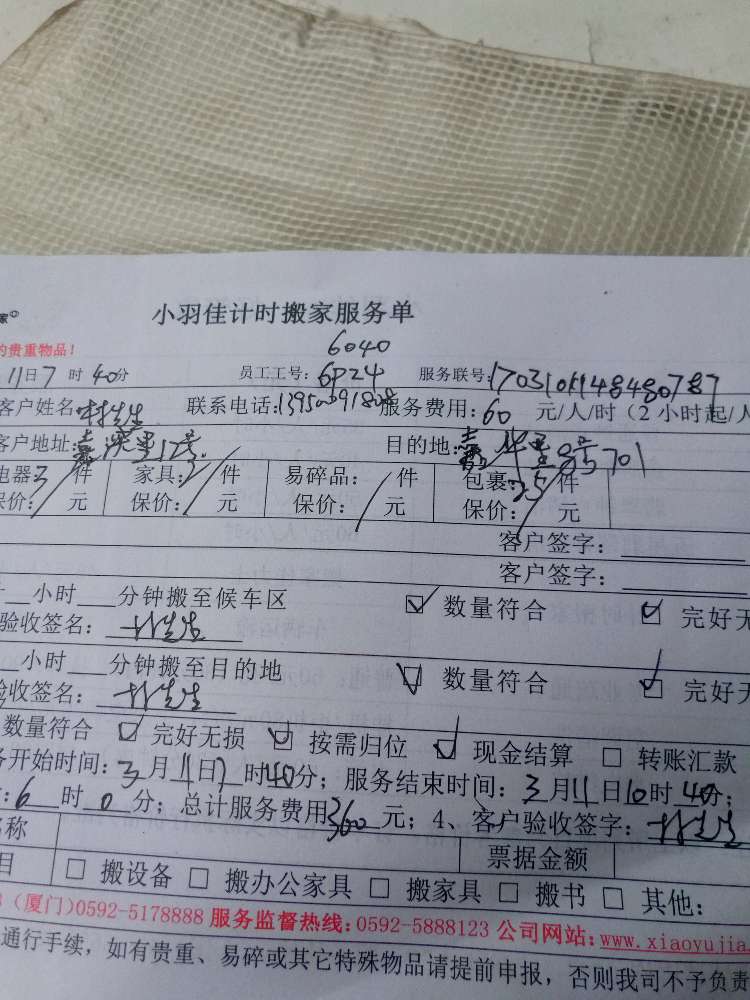 家
小羽佳计时搬家服务单
的贵重物品！
6040
11日7时40分 员工工号：6P24 服务联号：
客户姓名 联系电话： 服务费用：60元/人/时（2小时起/人
客户地址： 目的地： 701
电器3件 家具：2件 易碎品： 件 包裹：25件
保价： 元 保价： 元 保价： 元 保价： 元
客户签字：
客户签字：
小时 分钟搬至候车区 ☑数量符合 ☑完好无
验收签名：
小时 分钟搬至目的地 ☑数量符合 ☑完好无
验收签名：
数量符合 ☑完好无损 ☑按需归位 ☑现金结算 □转账汇款
务开始时间：3月11日7时40分；服务结束时间：3月11日10时40分；
：6时0分；总计服务费用360元；4、客户验收签字：
名称 票据金额
目 □搬设备 □搬办公家具 □搬家具 □搬书 □其他：
（厦门）0592-5178888 服务监督热线：0592-5888123 公司网站：www.xiaoyujia.
通行手续，如有贵重、易碎或其它特殊物品请提前申报，否则我司不予负责